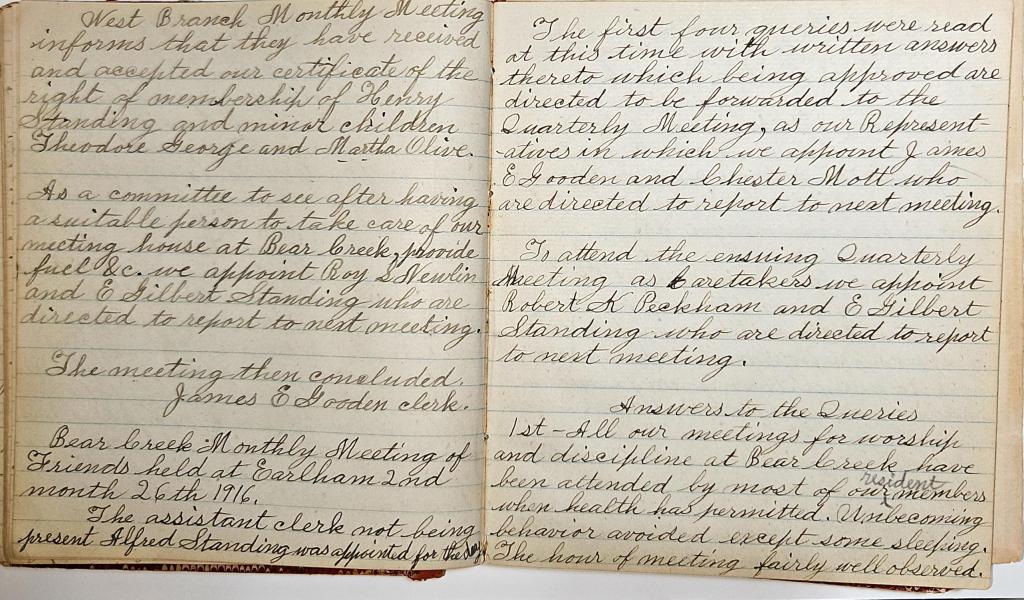 West Branch Monthly Meeting
informs that they have received
and accepted our certificate of the
right of membership of Henry
Standing and minor children
Theodore George and Martha Olive.
As a committee to see after having
a suitable person to take care of our
meeting house at Bear Creek, provide
fuel &c. we appoint Roy L Newlin
and E Gilbert Standing who are
directed to report to next meeting.
The meeting then concluded.
James E Gooden clerk.
Bear Creek Monthly Meeting of
Friends held at Earlham 2nd
month 26th 1916.
The assistant clerk not being
present Alfred Standing was appointed for the day
The first four queries were read
at this time with written answers
thereto which being approved are
directed to be forwarded to the
Quarterly Meeting, as our Represent-
-atives in which we appoint James
E Gooden and Chester Mott who
are directed to report to next meeting.
To attend the ensuing Quarterly
Meeting as Caretakers we appoint
Robert K Peckham and E Gilbert
Standing who are directed to report
to next meeting.
Answers to the Queries
1st - All our meetings for worship
and discipline at Bear Creek have
been attended by most of our resident members
when health has permitted. Unbecoming
behavior avoided except some sleeping.
The hour of meeting fairly well observed.